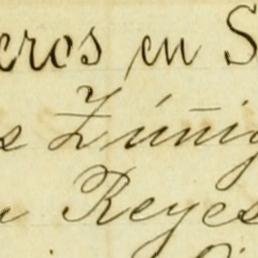 eros en S
s Zúñig
Reyes